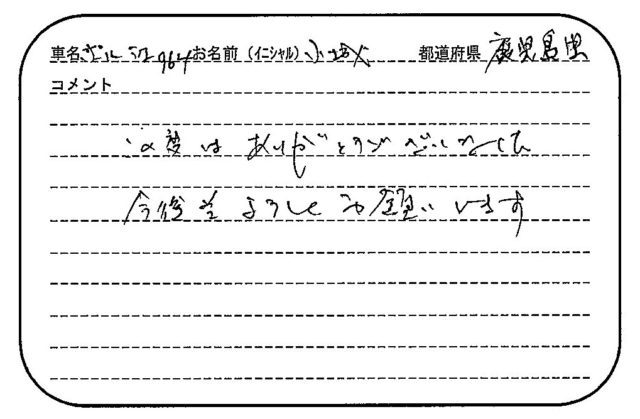 車名 ポルシェ964 お名前(イニシャル) 小 都道府県 鹿児島県
コメント
この度はありがとうございました
今後共よろしくお願いします